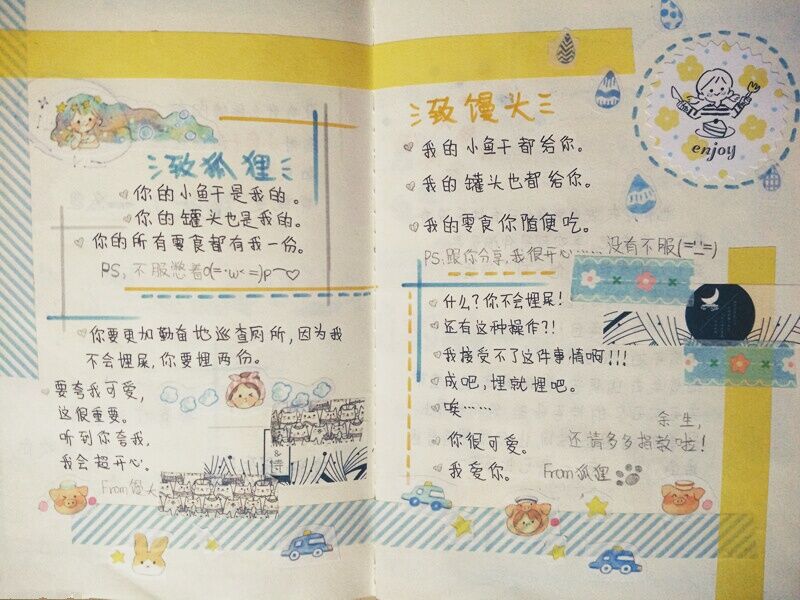 致狐狸
你的小鱼干是我的。
你的罐头也是我的。
你的所有零食都有我一份。
PS: 不服憋着o(=·ω<=)p⌒♡
你要更加勤奋地巡查厕所,因为我
不会埋屎,你要埋两份。
要夸我可爱,
这很重要。
听到你夸我,
我会超开心。
From馒头
致馒头
我的小鱼干都给你。
我的罐头也都给你。
我的零食你随便吃。
PS:跟你分享,我很开心……没有不服(='_'=)
什么?你不会埋屎!
还有这种操作?!
我接受不了这件事情啊!!!
成吧,埋就埋吧。
唉……
你很可爱。
我爱你。
余生,
还请多多指教啦!
From狐狸
enjoy